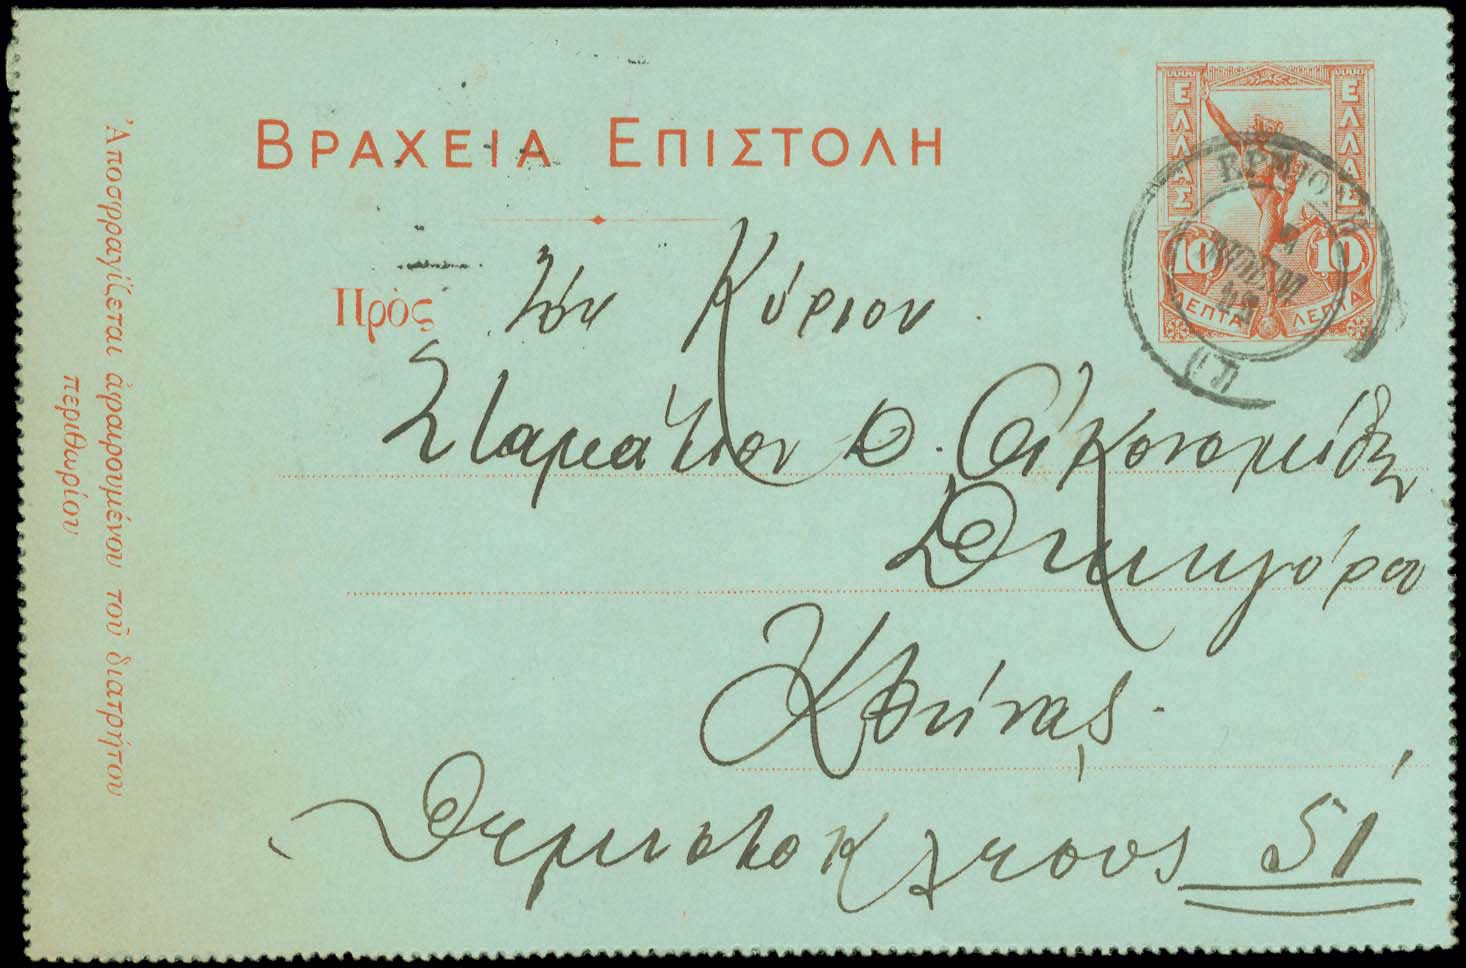 ΒΡΑΧΕΙΑ ΕΠΙΣΤΟΛΗ
ΕΛΛΑΣ
ΕΛΛΑΣ
10 10
ΛΕΠΤΑ ΛΕΠΤΑ
ΕΡΜΙΟΝΗ
Πρὸς τὸν Κύριον
Σταμάτιον Δ. Οἰκονομίδην
Δικηγόρον
Ἀθήνας
Θεμιστοκλέους 51
Ἀποσφραγίζεται ἀφαιρουμένου τοῦ διατρήτου
περιθωρίου